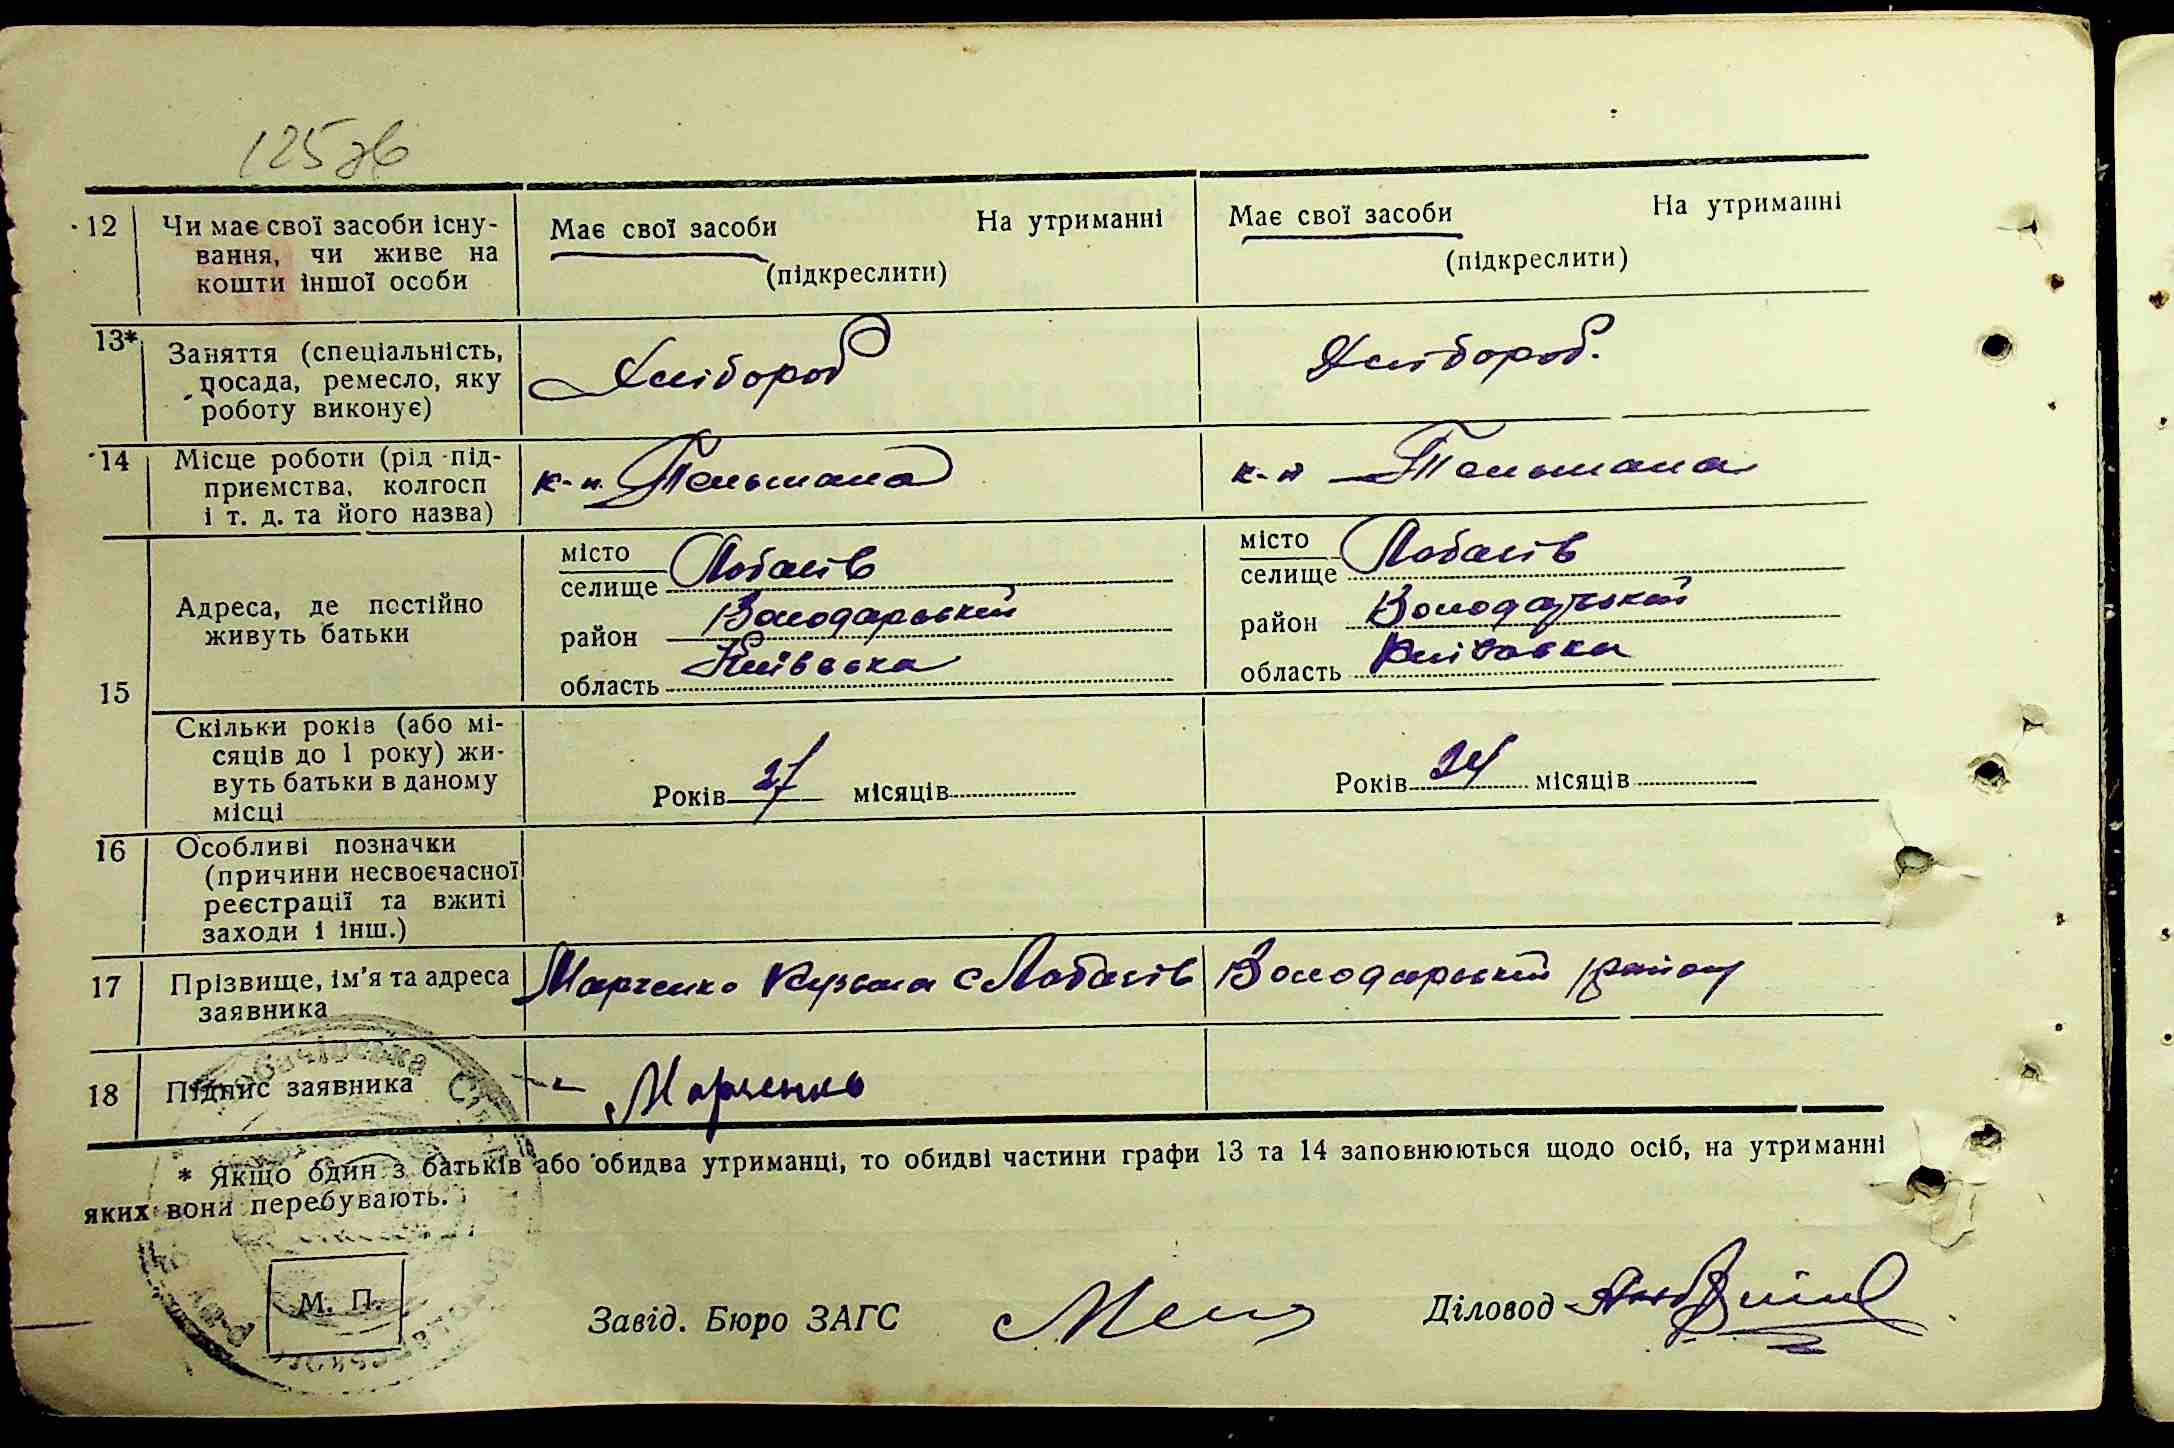 125 зв
12 Чи має свої засоби існу- Має свої засоби На утриманні Має свої засоби На утриманні
вання, чи живе на (підкреслити) (підкреслити)
кошти іншої особи
13* Заняття (спеціальність, Хлібороб Хлібороб.
посада, ремесло, яку
роботу виконує)
14 Місце роботи (рід під- к-п. Тельмана к-п Тельмана
приємства, колгосп
і т. д. та його назва)
15 Адреса, де постійно
живуть батьки
місто
селище Лобачів
район Володарський
область Київська
місто
селище Лобачів
район Володарський
область Київська
Скільки років (або мі-
сяців до 1 року) жи-
вуть батьки в даному
місці
Років 27 місяців Років 24 місяців
16 Особливі позначки
(причини несвоєчасної
реєстрації та вжиті
заходи і інш.)
17 Прізвище, ім'я та адреса Марченко Кузьма с Лобачів Володарський району
заявника
18 Підпис заявника Марченко
* Якщо один з батьків або обидва утриманці, то обидві частини графи 13 та 14 заповнюються щодо осіб, на утриманні
яких вони перебувають.
М. П.
Завід. Бюро ЗАГС Діловод